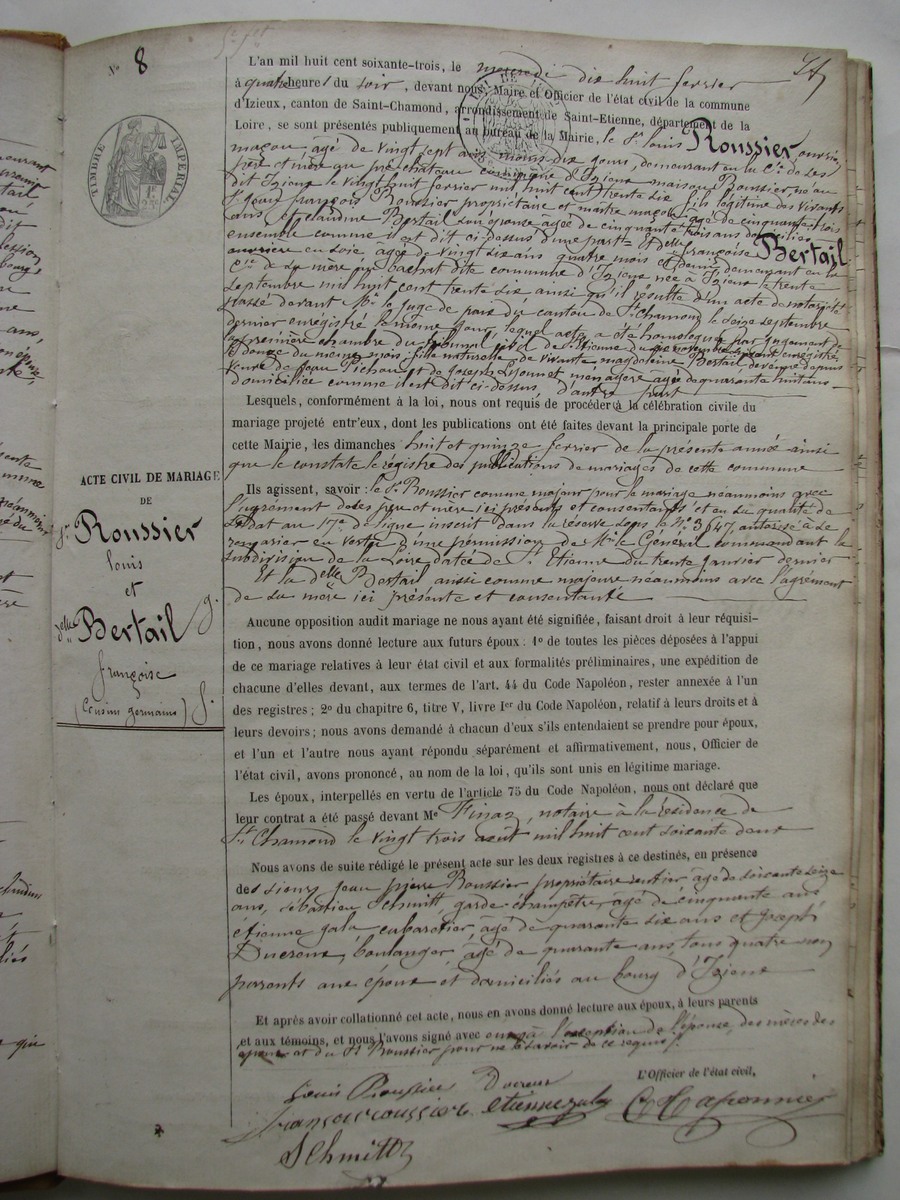 No 8
TIMBRE IMPÉRIAL
L'an mil huit cent soixante-trois, le mercredi dix huit fevrier
à quatre heures du soir, devant nous, Maire et Officier de l'état civil de la commune
d'Izieux, canton de Saint-Chamond, arrondissement de Saint-Etienne, département de la
Loire, se sont présentés publiquement au bureau de la Mairie, le Sr louis Roussier ouvrier
maçon agé de vingt sept ans moins dix jours, demeurant en la Cie de ses
père et mère au pré chateau commune d'Izieux maison Roussier né au
dit Izieux le vingt huit fevrier mil huit cent trente six fils légitime des vivants
Sr Jean françois Roussier propriétaire et maitre maçon agé de cinquante trois
ans et claudine Bertail son épouse agée de cinquante trois ans domiciliés
ensemble comme il est dit ci-dessus d'une part. Et delle françoise Bertail
ouvrière en soie agée de vingt six ans quatre mois et demi demeurant en la
Cie de sa mère dite commune d'Izieux née à Izieux le trente
septembre mil huit cent trente six ainsi qu'il résulte d'un acte de notoriété
passé devant Mr le Juge de paix du canton de St Chamond le seize septembre
dernier enregistré le même jour, lequel acte a été homologué par jugement de
la première chambre du tribunal civil de St Etienne
fille naturelle de vivante magdeleine Bertail devenue depuis
veuve de Jean Pichon et de Joseph ménagère agée de quarante huit ans
domiciliée comme il est dit ci-dessus, d'autre part
Lesquels, conformément à la loi, nous ont requis de procéder à la célébration civile du
mariage projeté entr'eux, dont les publications ont été faites devant la principale porte de
cette Mairie, les dimanches huit et quinze fevrier de la présente année ainsi
que le constate le régistre des publications de mariages de cette commune
Ils agissent, savoir: le Sr Roussier comme majeur pour le mariage néanmoins avec
l'agrément de ses père et mère ici présents et consentants et en sa qualité de
soldat au 17e de ligne inscrit dans la réserve sous le No 3647 autorisé à se
marier en vertu d'une permission de Mr le Général commandant la
subdivision de la Loire datée de St Etienne du trente Janvier dernier
Et la delle Bertail aussi comme majeure néanmoins avec l'agrément
de sa mère ici présente et consentante
ACTE CIVIL DE MARIAGE
DE
Sr Roussier
louis
et
delle Bertail
françoise
(Cousin germains)
Aucune opposition audit mariage ne nous ayant été signifiée, faisant droit à leur réquisi-
tion, nous avons donné lecture aux futurs époux. 1o de toutes les pièces déposées à l'appui
de ce mariage relatives à leur état civil et aux formalités préliminaires, une expédition de
chacune d'elles devant, aux termes de l'art. 44 du Code Napoléon, rester annexée à l'un
des registres; 2o du chapitre 6, titre V, livre Ier du Code Napoléon, relatif à leurs droits et à
leurs devoirs; nous avons demandé à chacun d'eux s'ils entendaient se prendre pour époux,
et l'un et l'autre nous ayant répondu séparément et affirmativement, nous, Officier de
l'état civil, avons prononcé, au nom de la loi, qu'ils sont unis en légitime mariage.
Les époux, interpellés en vertu de l'article 75 du Code Napoléon, nous ont déclaré que
leur contrat a été passé devant Me Finaz, notaire à la résidence de
St Chamond le vingt trois août mil huit cent soixante deux
Nous avons de suite rédigé le présent acte sur les deux registres à ce destinés, en présence
des sieurs Jean pierre Roussier propriétaire rentier agé de soixante seize
ans, sébastien Schmitt garde champêtre agé de cinquante ans
étienne gala cabaretier, agé de quarante six ans et Joseph
Ducreux, boulanger, agé de quarante ans, tous quatre non
parents aux époux et domiciliés au bourg d'Izieux
Et après avoir collationné cet acte, nous en avons donné lecture aux époux, à leurs parents
et aux témoins, et nous l'avons signé avec eux à l'exception de l'épouse, des mères des
époux et du Sr Roussier pour ne le savoir de ce requis
L'Officier de l'état civil,
Louis Roussier Ducreux
françois roussier etienne gala
Schmitt